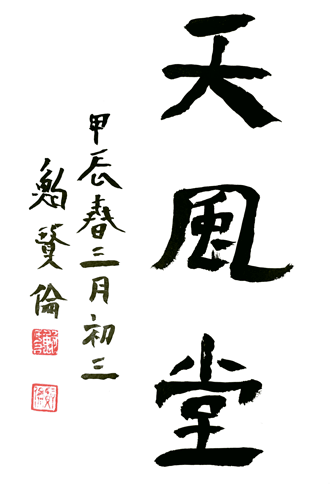 天風堂
甲辰春三月初三
鮑賢倫